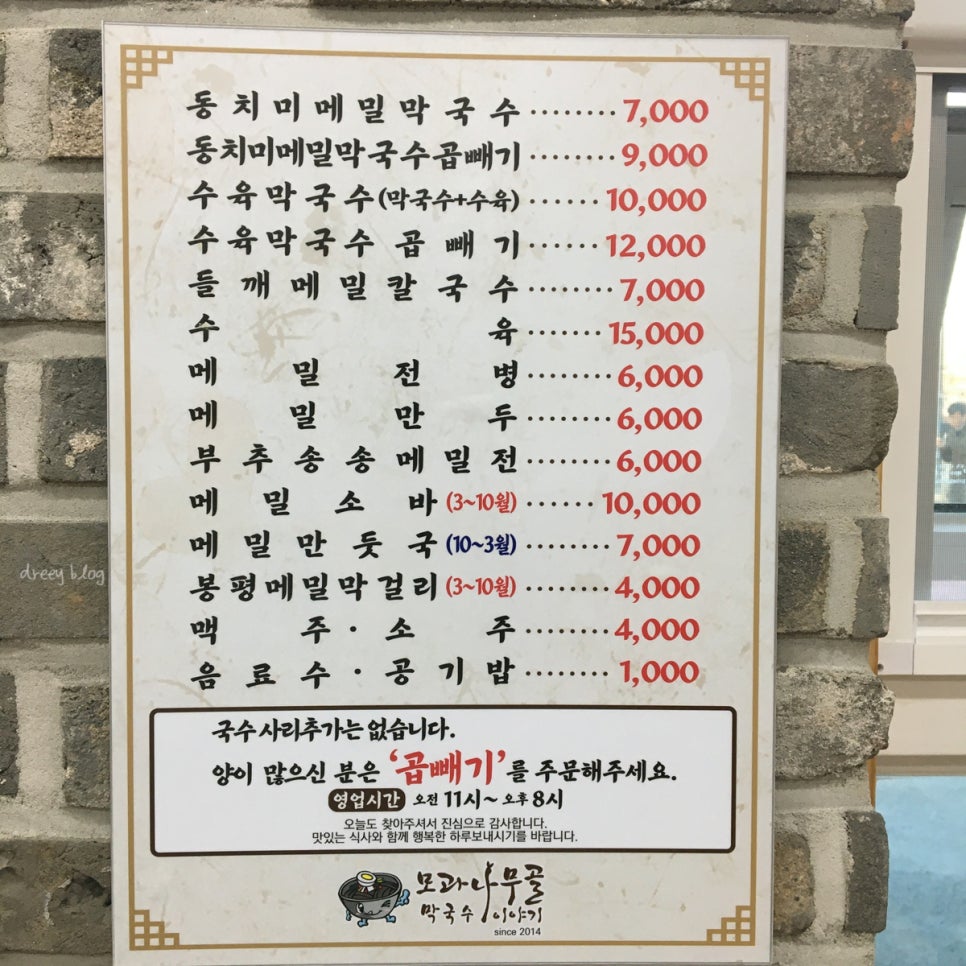 동치미메밀막국수········7,000
동치미메밀막국수곱빼기········9,000
수육막국수(막국수+수육)········10,000
수육막국수곱빼기········12,000
들깨메밀칼국수········7,000
수육········15,000
메밀전병········6,000
메밀만두········6,000
부추송송메밀전········6,000
메밀소바(3~10월)······10,000
메밀만둣국(10~3월)········7,000
봉평메밀막걸리(3~10월)········4,000
맥주·소주········4,000
음료수·공기밥········1,000
국수 사리추가는 없습니다.
양이 많으신 분은 '곱빼기'를 주문해주세요.
영업시간 오전 11시~ 오후 8시
오늘도 찾아주셔서 진심으로 감사합니다.
맛있는 식사와 함께 행복한 하루보내시기를 바랍니다.
모과나무골
막국수 이야기
since 2014
dreey blog